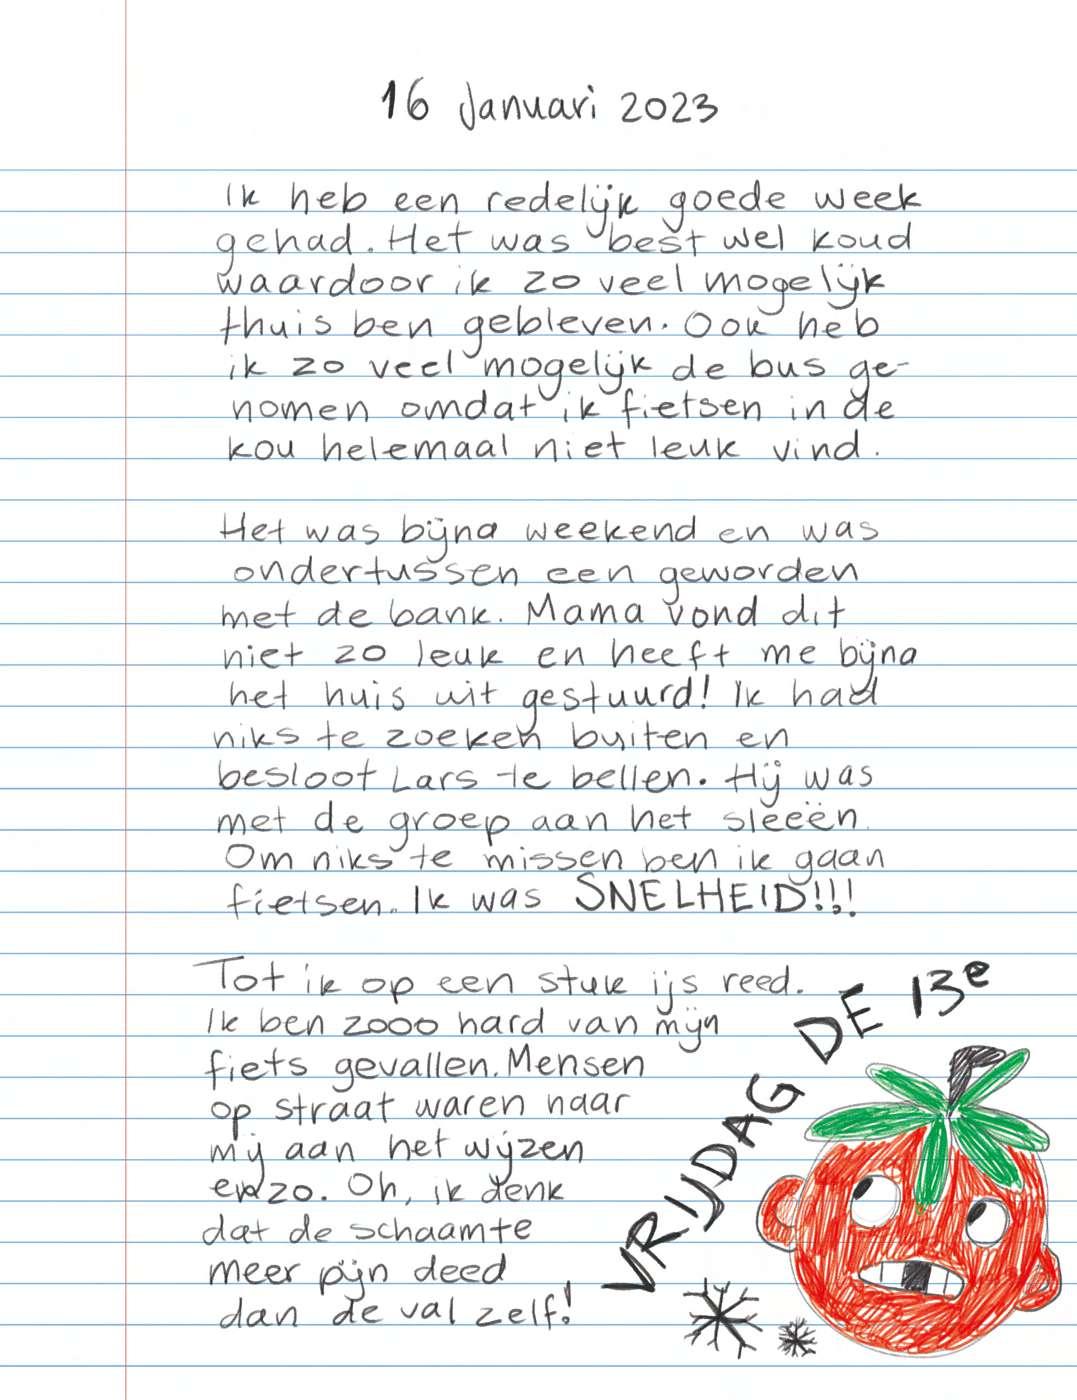 16 Januari 2023
Ik heb een redelijk goede week
gehad. Het was best wel koud
waardoor ik zo veel mogelijk
thuis ben gebleven. Ook heb
ik zo veel mogelijk de bus ge-
nomen omdat ik fietsen in de
kou helemaal niet leuk vind.
Het was bijna weekend en was
ondertussen een geworden
met de bank. Mama vond dit
niet zo leuk en heeft me bijna
het huis uit gestuurd! Ik had
niks te zoeken buiten en
besloot Lars te bellen. Hij was
met de groep aan het sleeën.
Om niks te missen ben ik gaan
fietsen. Ik was SNELHEID!!!
Tot ik op een stuk ijs reed.
Ik ben zooo hard van mijn
fiets gevallen. Mensen
op straat waren naar
mij aan het wijzen
enzo. Oh, ik denk
dat de schaamte
meer pijn deed
dan de val zelf!
VRIJDAG DE 13e